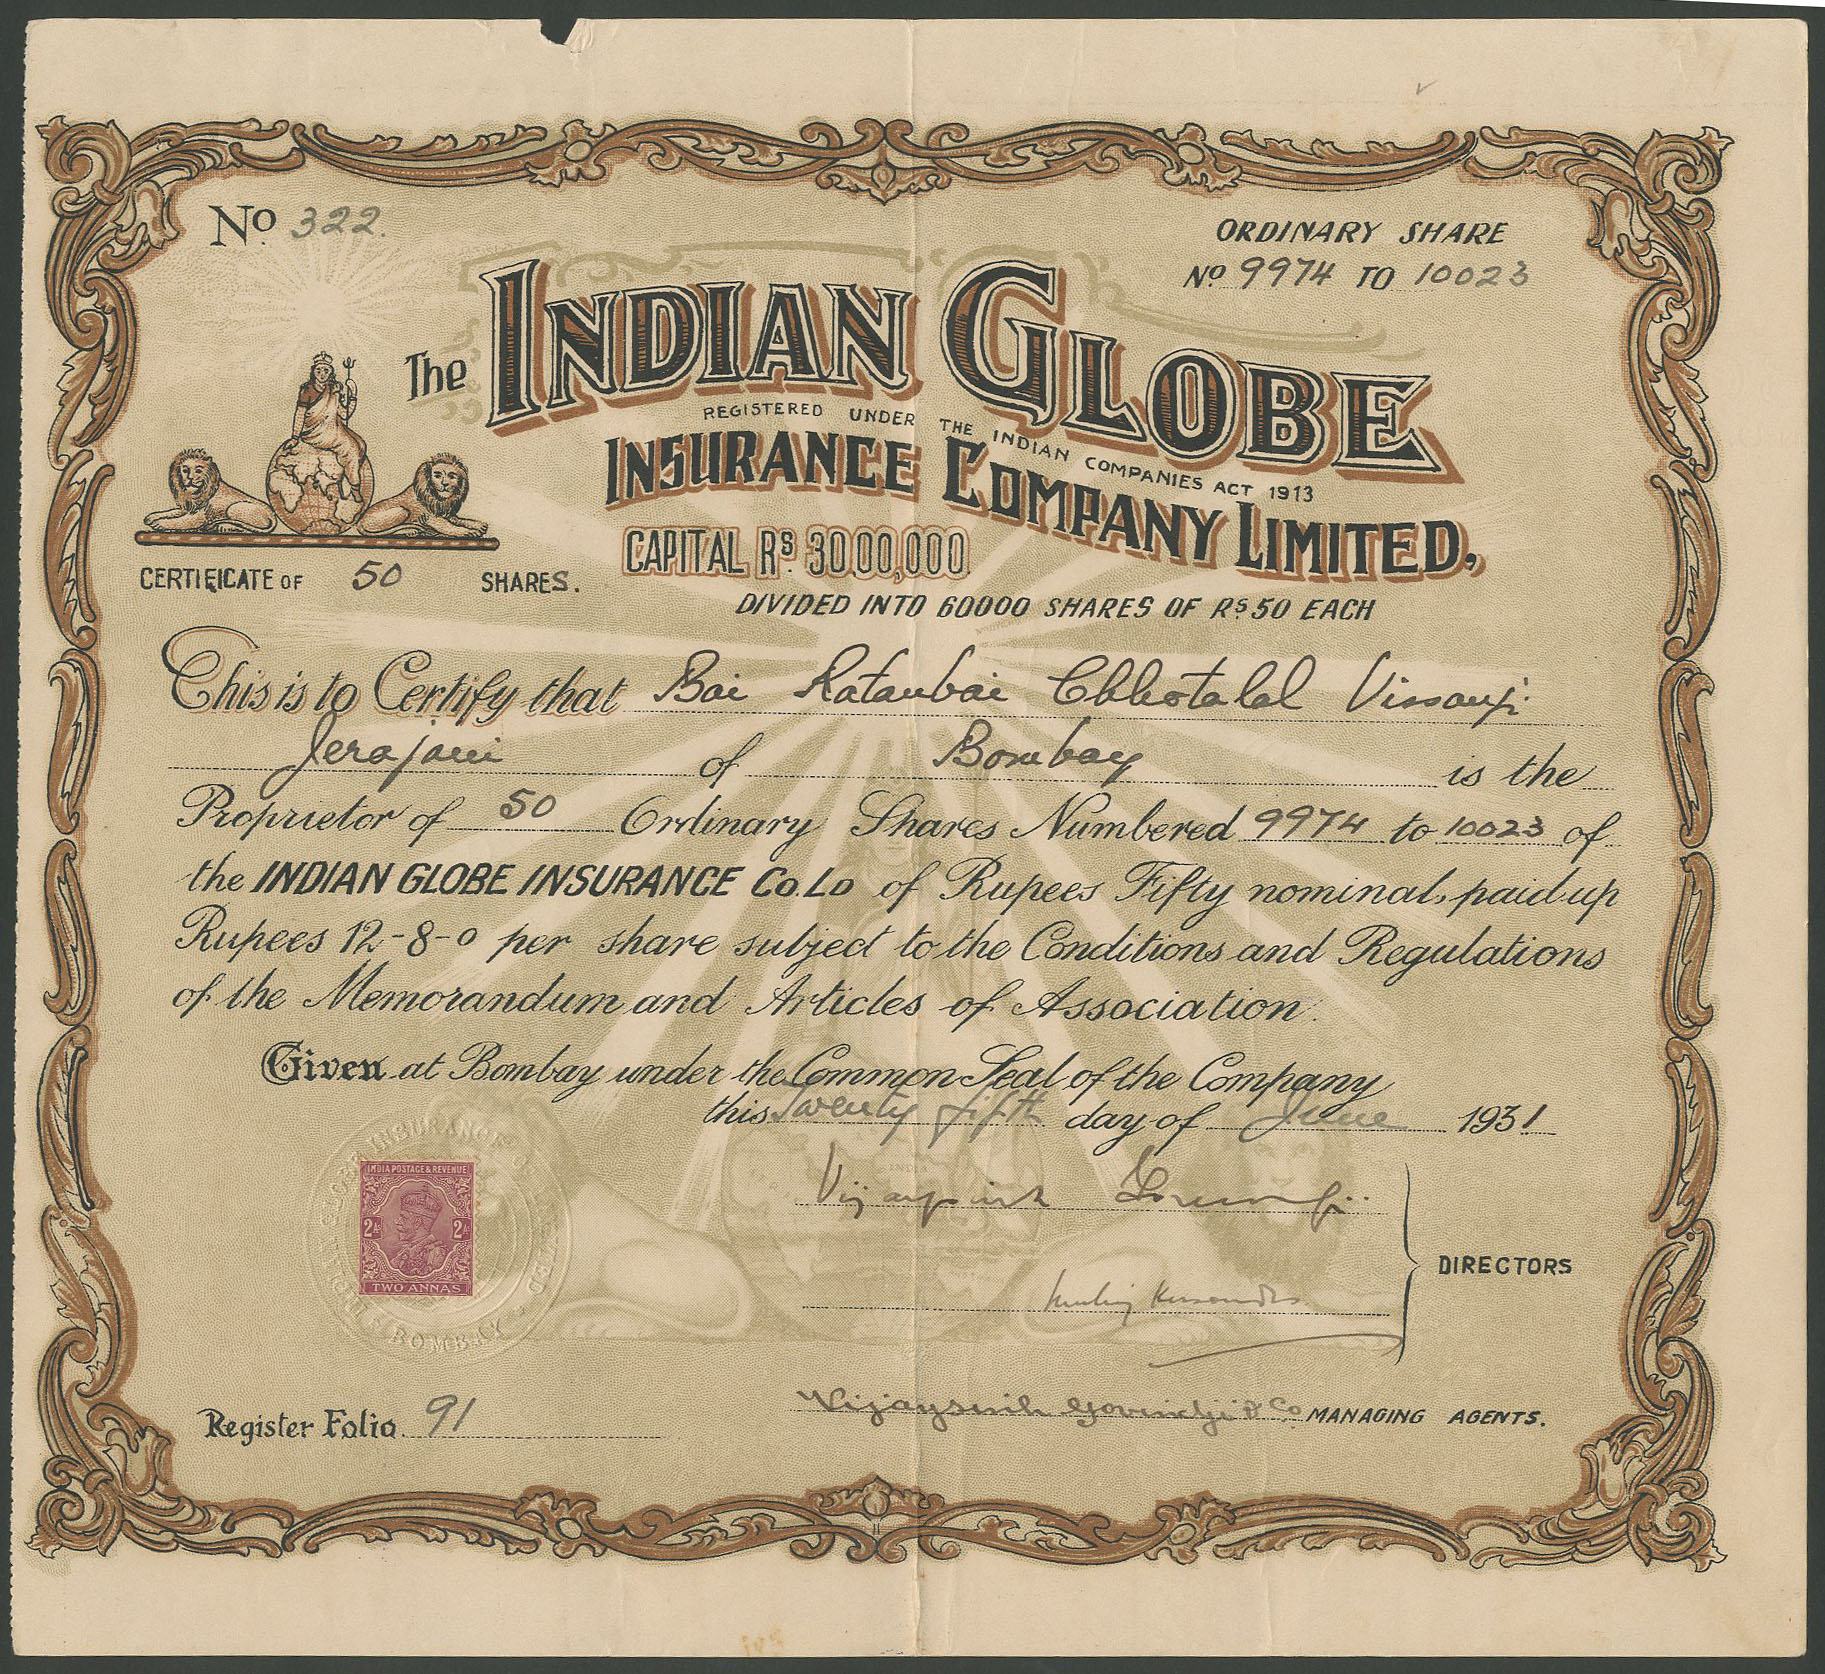 No. 322.
ORDINARY SHARE
No 9974 TO 10023
The INDIAN GLOBE
REGISTERED UNDER THE INDIAN COMPANIES ACT 1913
INSURANCE COMPANY LIMITED,
CAPITAL Rs. 30,00,000
DIVIDED INTO 60000 SHARES OF Rs 50 EACH
CERTIFICATE OF 50 SHARES.
This is to Certify that Bai Ratanbai Chhotalal Vissanji
Jerajani of Bombay is the
Proprietor of 50 Ordinary Shares Numbered 9974 to 10023 of
the INDIAN GLOBE INSURANCE Co. LD of Rupees Fifty nominal, paid up
Rupees 12-8-0 per share subject to the Conditions and Regulations
of the Memorandum and Articles of Association.
Given at Bombay under the Common Seal of the Company
this Twenty fifth day of June 1931
INDIA POSTAGE & REVENUE
2As 2As
TWO ANNAS
BOMBAY
DIRECTORS
Register Folio 91
Vijaysinh Govindji & Co MANAGING AGENTS.